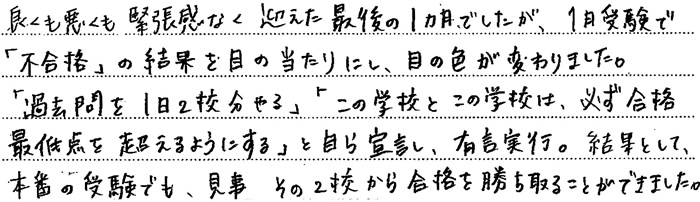 良くも悪くも緊張感なく迎えた最後の1カ月でしたが、1月受験で
「不合格」の結果を目の当たりにし、目の色が変わりました。
「過去問を1日2校分やる」「この学校とこの学校は、必ず合格
最低点を超えるようにする」と自ら宣言し、有言実行。結果として、
本番の受験でも、見事その2校から合格を勝ち取ることができました。